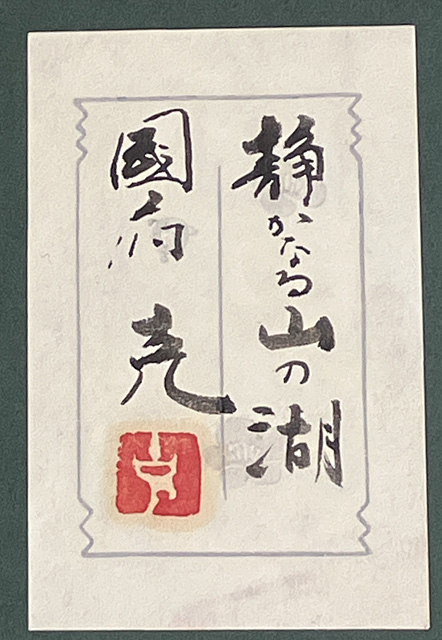 静かなる山の湖
國府 克